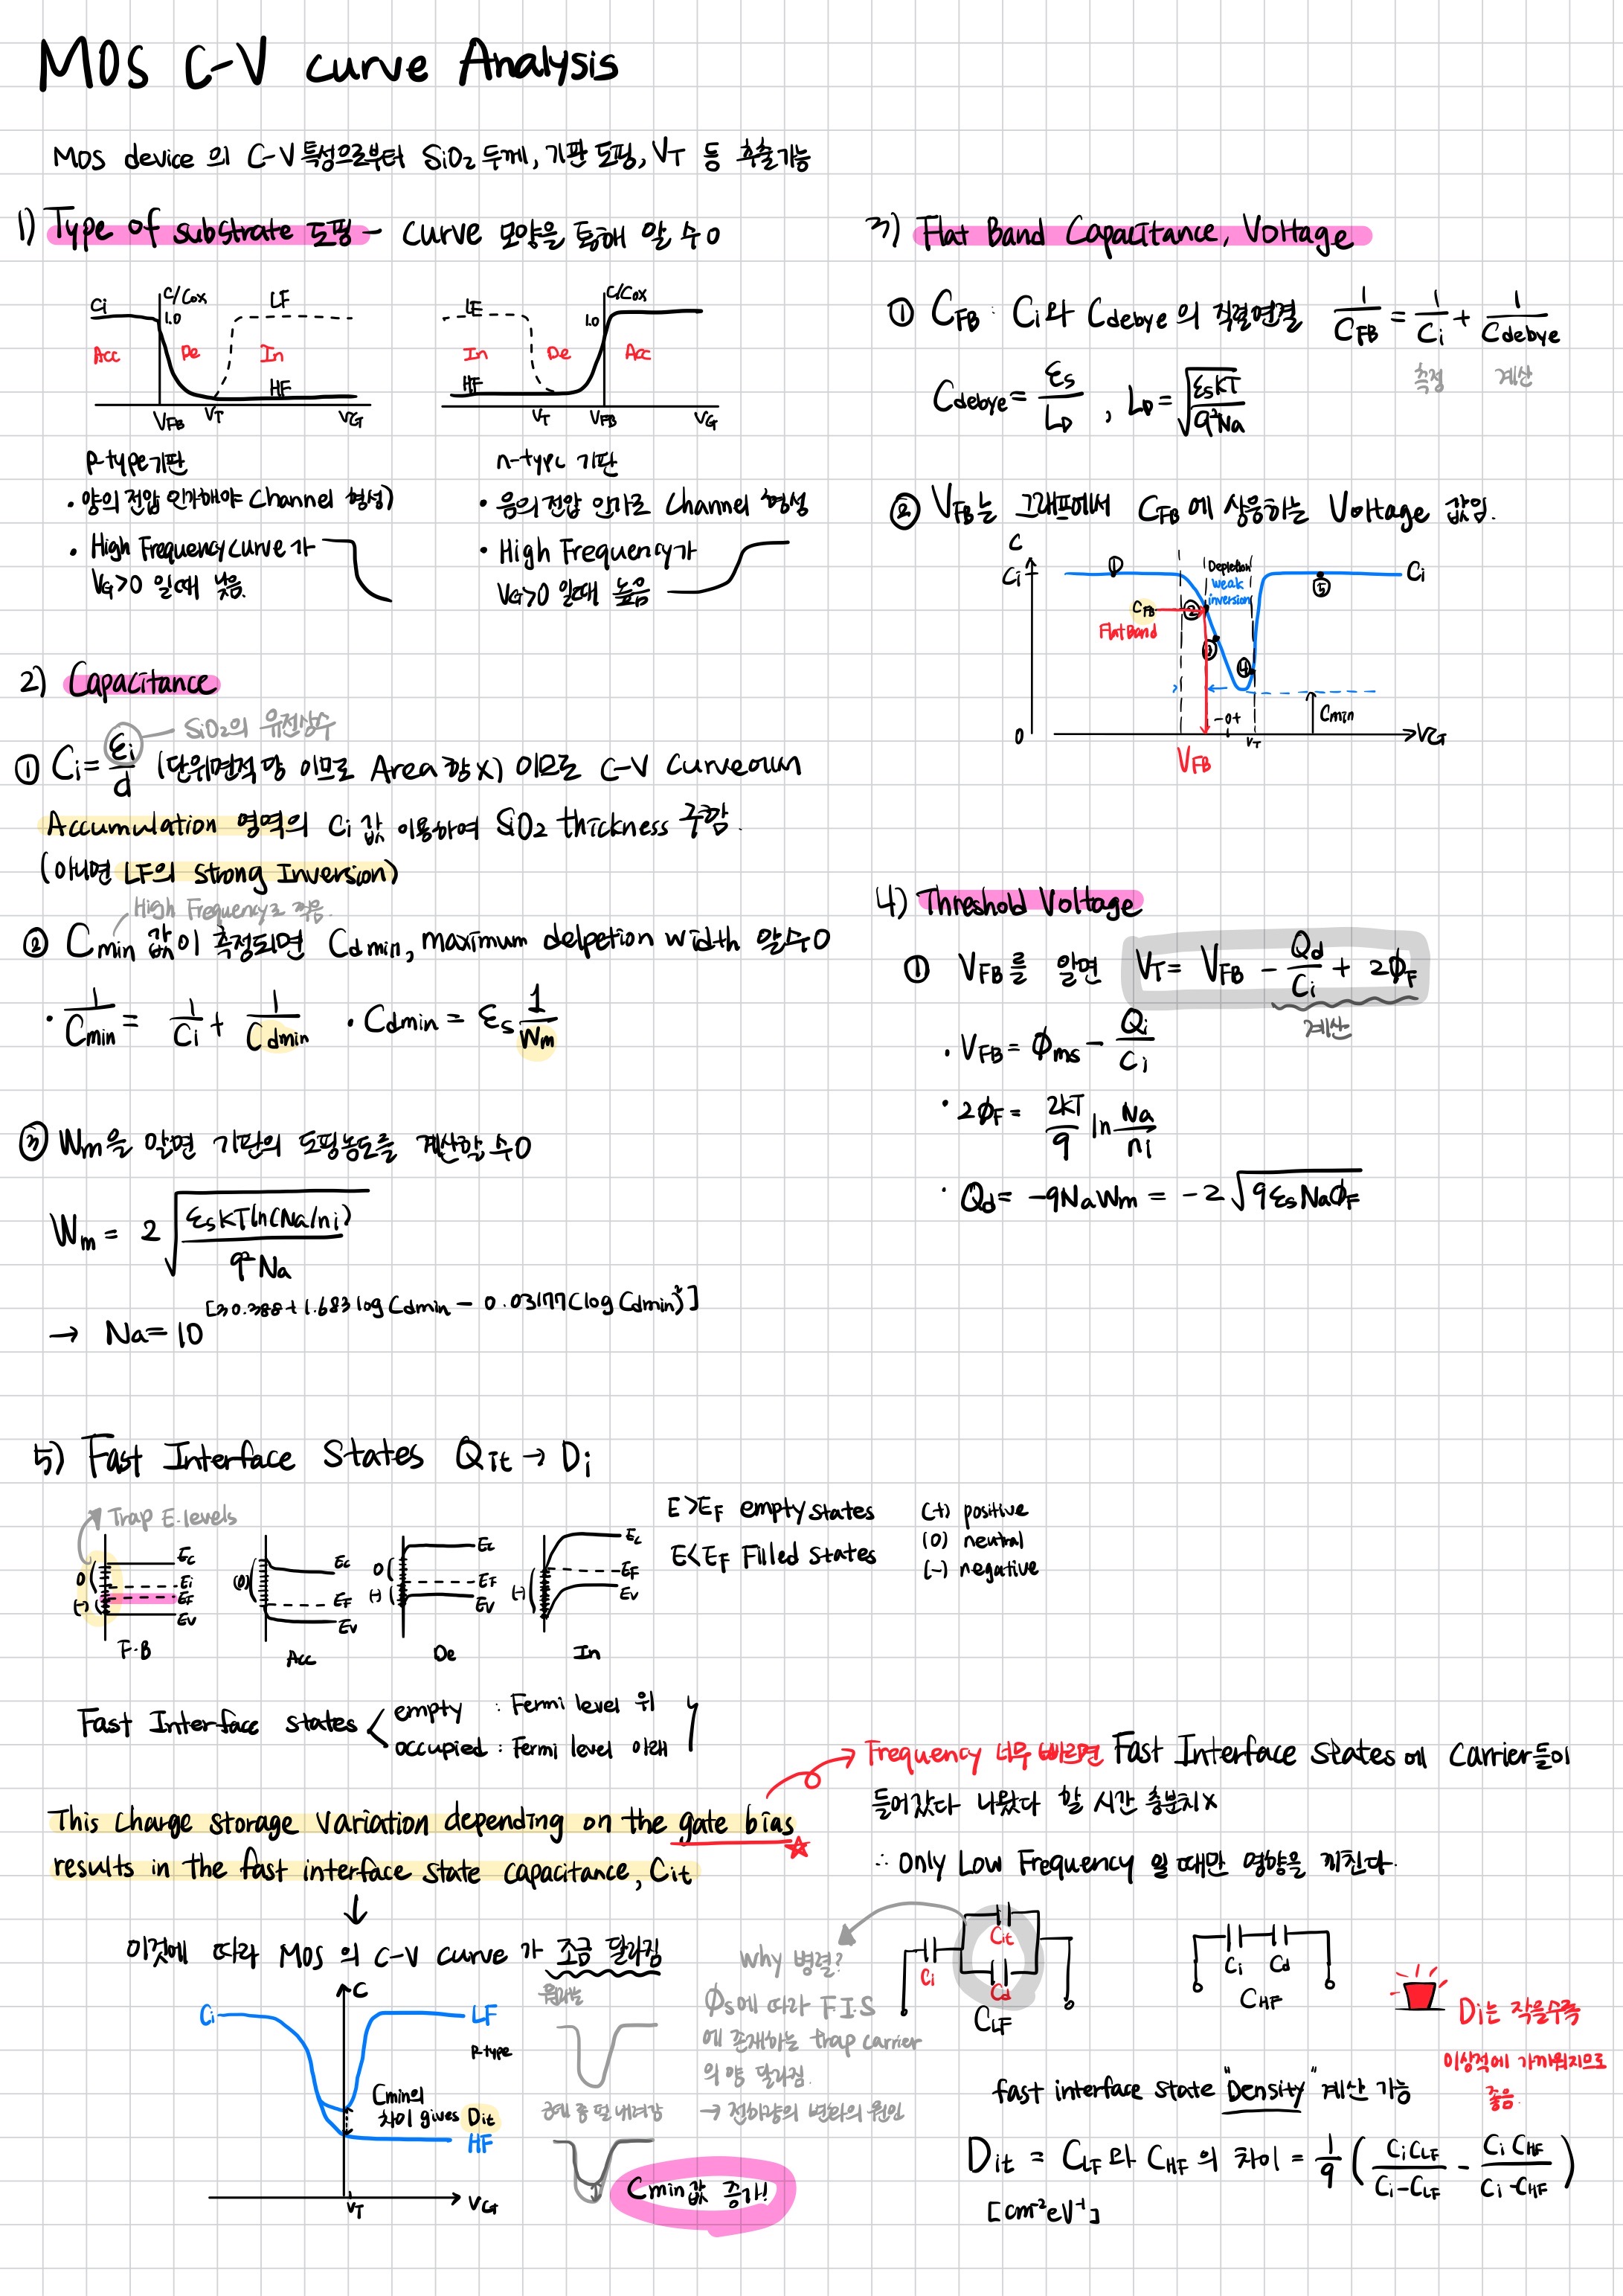 MOS C-V curve Analysis
MOS device 의 C-V 특성으로부터 SiO₂ 두께, 기판 도핑, V_T 등 추출가능
1) Type of substrate 도핑 - curve 모양을 통해 알 수 O
Ci C/Cox 1.0 LF
Acc De In
HF
V_FB V_T V_G
P-type 기판
· 양의 전압 인가해야 Channel 형성)
· High Frequency curve 가
V_G>0 일때 낮음.
LF C/Cox 1.0
In De Acc
HF
V_T V_FB V_G
n-type 기판
· 음의 전압 인가로 Channel 형성
· High Frequency가
V_G>0 일때 높음
2) Capacitance
SiO₂의 유전상수
① Ci = εi/d (단위면적당 이므로 Area 항 X) 이므로 C-V Curve
Accumulation 영역의 Ci 값 이용하여 SiO₂ thickness 구함.
(아니면 LF의 Strong Inversion)
High Frequency로 찍음.
② Cmin 값이 측정되면 Cdmin, maximum delpetion width 알수O
· 1/Cmin = 1/Ci + 1/Cdmin · Cdmin = εs 1/Wm
③ Wm을 알면 기판의 도핑농도를 계산할 수O
Wm = 2√(εs kT ln(Na/ni) / q²Na)
→ Na = 10^[30.388 + 1.683 log Cdmin - 0.03177(log Cdmin)²]
3) Flat Band Capacitance, Voltage
① C_FB : Ci와 Cdebye 의 직렬연결 1/C_FB = 1/Ci + 1/Cdebye
측정 계산
Cdebye = εs/L_D , L_D = √(εs kT / q²Na)
② V_FB는 그래프에서 C_FB에 상응하는 Voltage 값임.
C
Ci ① Depletion Ci
weak
inversion ⑤
C_FB ②
Flat Band
③ ④
Cmin
0 -0+ V_T V_G
V_FB
4) Threshold Voltage
① V_FB를 알면 V_T = V_FB - Qd/Ci + 2ϕ_F
계산
· V_FB = ϕms - Qi/Ci
· 2ϕ_F = 2kT/q ln Na/ni
· Qd = -qNaWm = -2√(qεsNaϕ_F)
5) Fast Interface States Qit → Di
Trap E.levels
0 (-) Ec Ei E_F Ev
F·B
(0) Ec E_F Ev
Acc
0 (-) Ec E_F Ev
De
(-) Ec E_F Ev
In
E>E_F empty states
E<E_F Filled States
(+) positive
(0) neutral
(-) negative
Fast Interface states
empty : Fermi level 위
occupied : Fermi level 아래
This Charge storage Variation depending on the gate bias
results in the fast interface state capacitance, Cit
↓
이것에 따라 MOS 의 C-V curve 가 조금 달라짐
C
Ci LF
P-type
Cmin의
차이 gives Dit
HF
V_T V_G
원래는
Cmin값 증가!
→ Frequency 너무 빠르면 Fast Interface States에 Carrier들이
들어갔다 나왔다 할 시간 충분치X
∴ Only Low Frequency 일 때만 영향을 끼친다.
Why 병렬?
ϕs에 따라 F.I.S
에 존재하는 trap carrier
의 양 달라짐.
→ 전하량의 변화의 원인
Ci Cit Cd
C_LF
Ci Cd
C_HF
Di는 작을수록
이상적에 가까워지므로
좋음.
fast interface state "Density" 계산 가능
Dit = C_LF와 C_HF의 차이 = 1/q (CiC_LF/(Ci-C_LF) - CiC_HF/(Ci-C_HF))
[cm⁻²eV⁻¹]